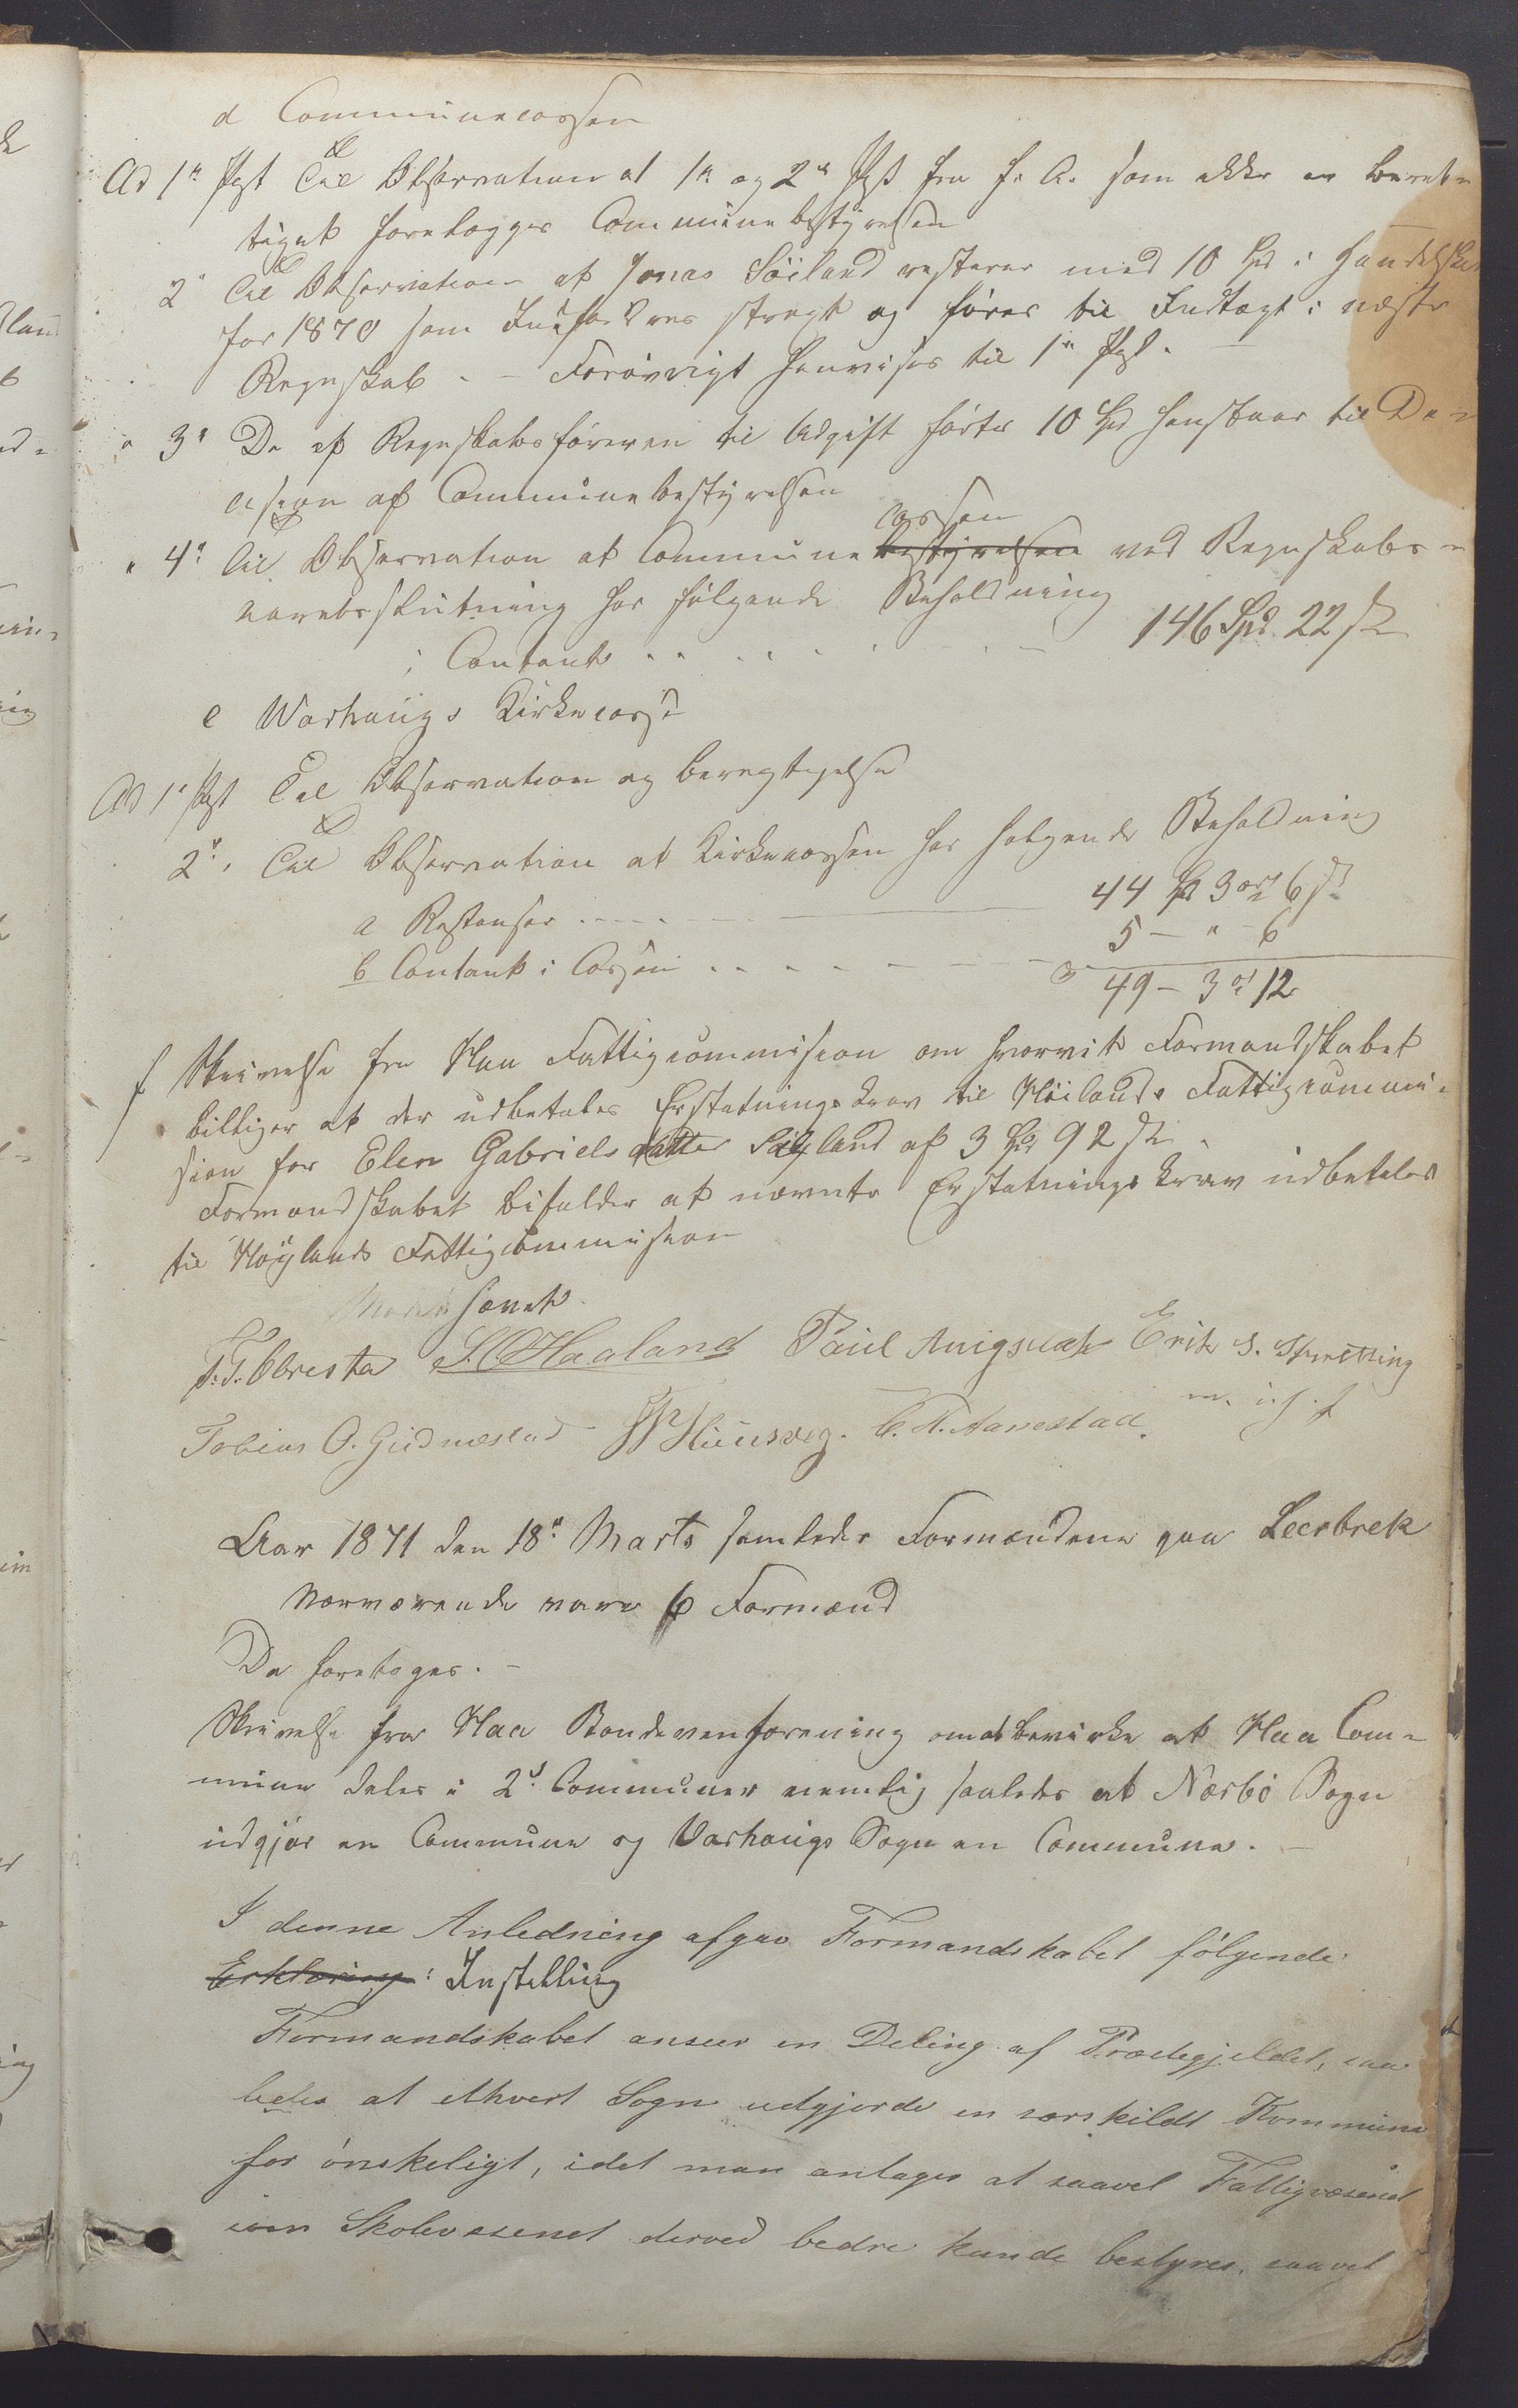 d Communecassen
Ad 1n Pgst Til Observation at 1n og 2n Pgst fra f. A. som ikke er beret-
tiget foretages Communebestyrelsen
2n Til Observation at Jonas Söiland resterer med 10 Spd i Handelsskat
for 1870 som Indfordres strægt og föres til Indtægt i næste
Regnskab. – Forövrigt henvises til 1n Pgst. –
" 3n De af Regnskabsföreren til Udgift förte 10 Spd henstaar til De-
cision af Communebestyrelsen
" 4n Til Observation at Communecassen ved Regnskabs-
aarets slutning har fölgende Beholdning
i Contant . . . . . . . 146 Spd. 22 s
e Warhaugs Kirkecasse
Ad 1n Pgst Til Observation og beregtigelse
2n. Til Observation at Kirkecassen har folgende Beholdning
a Restanser . . . . 44 Spd 3 ort 6 s
b Contant i Cassen . . . . . 5 – " – 6
49 – 3 ort 12
f Skrivelse fra Haa Fattigcommision om hvorvit Formandskabet
billiger at der udbetales Erstatningskrav til Höilands Fattigcommi-
sion for Elen Gabrielsdatter Söyland af 3 Spd 92 s.
Formandskabet bifalder at nævnte Erstatningskrav udbetales
til Höylands Fattigcommision
Mödet hævet
T. T. Obrestad S. O. Haaland Paul Anigstad Erik S. Skretting
Tobias O. Gudmestad Huusveg. C. N. Aanestad. m. i. h. f
Aar 1871 den 18n Marts samledes Formændene paa Leerbrek
Nærværende vare 6 Formænd
Da foretoges. –
Skrivelse fra Haa Bondevenforening om at bevirke at Haa Com-
mune deles i 2de Communer nemlig saaledes at Nærbö Sogn
udgjör en Commune og Varhougs Sogn en Commune. –
I denne Anledning afgav Formandskabet fölgende
Erklæring: Instilling
Formandskabet anseer en Deling af Præstegjeldet, saa
ledes at ethvert Sogn udgjorde en særskildt Kommune
for önskeligt, idet man antager at saavel Fattigvæsenet
som Skolevæsenet derved bedre kunde bestyres, saavel